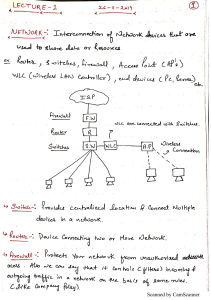 LECTURE-1
26-8-2019
1
NETWORK:- Interconnection of Network devices that are
used to share data or Resources
ex Router, Switches, firewall, Access Point (AP's)
WLC (Wireless LAN Controller), end devices (PC, Server) etc.
ISP
Firewall
FW
Router
R
WLC are connected with Switches.
Switches
SW
WLC
AP
Wireless
Connection
Switch:- Provides centralized location & Connect Multiple
devices in a network.
Router:- Device Connecting two or More Network.
Firewall:- Protects Your network from unauthorized
access. Also we can say that it controls (filters) incoming &
outgoing traffic in a network on the basis of some rules.
(Like Company Policy).
Scanned by CamScanner